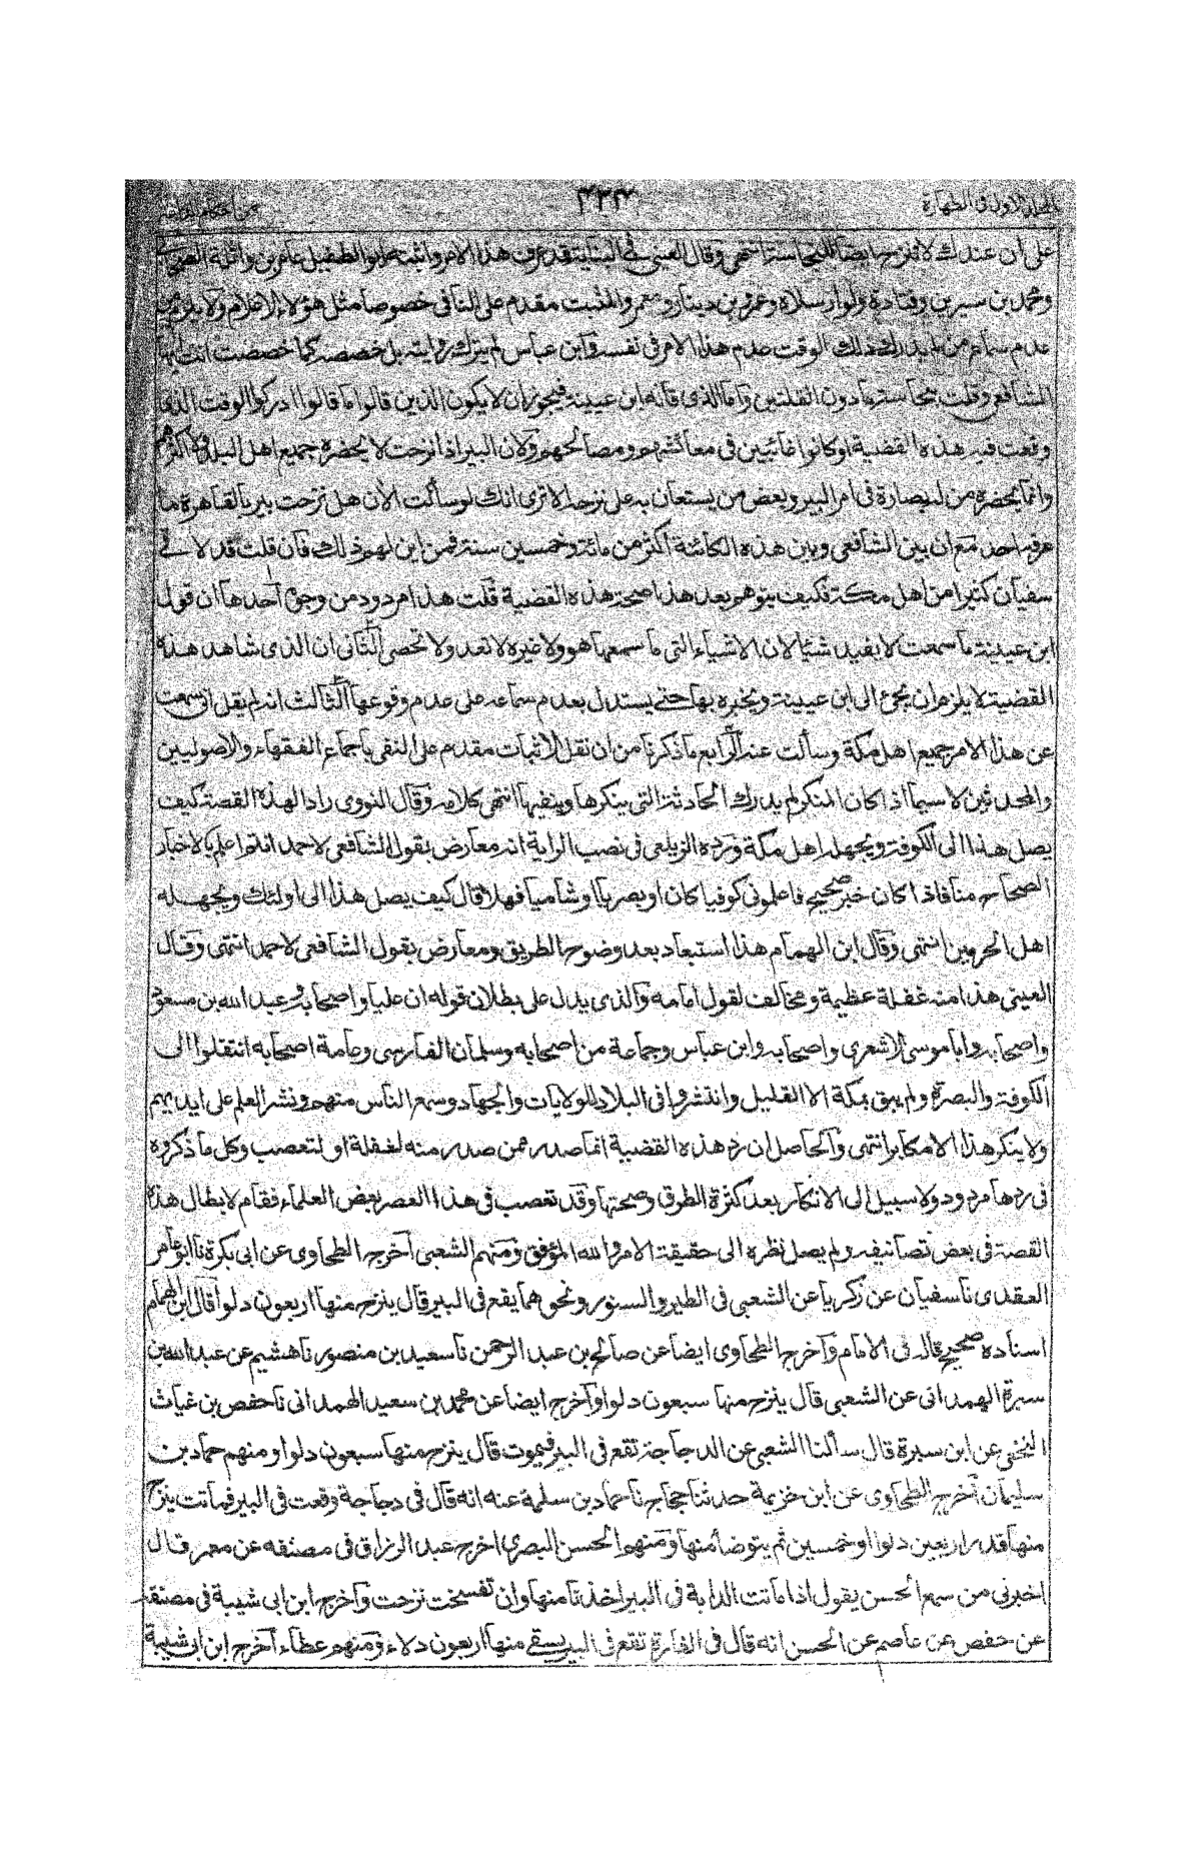 المجلد الاول فى الطهارة ٤٢٣ من احكام
على ان عندك لا تنزح ايضا للنجاسة انتهى وقال العينى فى البناية قد عرف هذا الامر واثبته ابو الطفيل عامر بن واثلة الصحابى
ومحمد بن سيرين وقتادة ولو ارسلاه وعمرو بن دينار ومعمر والمثبت مقدم على النافى خصوصا مثل هؤلاء الاعلام ولا يلزم من
عدم سماع من لم يدرك ذلك الوقت عدم هذا الامر فى نفسه وابن عباس لم يترك روايته بل خصصه كما خصصت انت ايها
الشافعى وقلت بنجاسة ما دون القلتين واما الذى قاله ابن عيينة فيجوز ان لا يكون الذين قالوا ما قالوا ادركوا الوقت الذى
وقعت فيه هذه القضية او كانوا غائبين فى معائشهم ومصالحهم ولان البير اذا نزحت لا يحضره جميع اهل البلد ولا اكثرهم
وانما يحضره من له بصارة فى امر البير وبعض من يستعان به على نزحه الا ترى انك لو سألت الان هل نزحت بير بالقاهرة ما
عرفه احد مع ان بين الشافعى وبين هذه الكائنة اكثر من مائة وخمسين سنة فمن اين لهم ذلك فان قلت قد لاقى
سفيان كثيرا من اهل مكة فكيف يتوهم بعد هذا صحة هذه القضية قلت هذا مردود من وجوه احدها ان قول
ابن عيينة ما سمعت لا يفيد شيئا لان الاشياء التى ما سمعها هو ولا غيره لا تعد ولا تحصى الثانى ان الذى شاهد هذه
القضية لا يلزم ان يجئ الى ابن عيينة ويخبره بها حتى يستدل بعدم سماعه على عدم وقوعها الثالث انه لم يقل انى سمعت
عن هذا الامر جميع اهل مكة وسألت عنه الرابع ما ذكرنا من ان نقل الاثبات مقدم على النفى باجماع الفقهاء والاصوليين
والمحدثين لا سيما اذا كان المنكر لم يدرك الحادثة التى ينكرها وينفيها انتهى كلامه وقال النووى رادا لهذه القصة كيف
يصل هذا الى الكوفة ويجهله اهل مكة ورده الزيلعى فى نصب الراية انه معارض بقول الشافعى لاحمد انتم اعلم بالاخبار
الصحاح منا فاذا كان خبر صحيح فاعلمونى كوفيا كان او بصريا او شاميا فهلا قال كيف يصل هذا الى اولئك ويجهله
اهل الحرمين انتهى وقال ابن الهمام هذا استبعاد بعد وضوح الطريق ومعارض بقول الشافعى لاحمد انتهى وقال
العينى هذا منه غفلة عظيمة ومخالف لقول امامه والذى يدل على بطلان قوله ان عليا واصحابه وعبد الله بن مسعود
واصحابه وابا موسى الاشعرى واصحابه وابن عباس وجماعة من اصحابه وسلمان الفارسى وعامة اصحابه انتقلوا الى
الكوفة والبصرة ولم يبق بمكة الا القليل وانتشروا فى البلاد للولايات والجهاد وسمع الناس منهم ونشر العلم على ايديهم
ولا ينكر هذا الا مكابر انتهى والحاصل ان رد هذه القضية انما صدر ممن صدر منه لغفلة او لتعصب وكل ما ذكروه
فى ردها مردود ولا سبيل الى الانكار بعد كثرة الطرق وصحتها وقد تعصب فى هذا العصر بعض العلماء فقام لابطال هذه
القصة فى بعض تصانيفه ولم يصل نظره الى حقيقة الامر والله الموفق ومنهم الشعبى اخرج الطحاوى عن ابى بكرة نا ابو عامر
العقدى نا سفيان عن زكريا عن الشعبى فى الطير والسنور ونحوهما يقع فى البير قال ينزح منها اربعون دلوا قال ابن الهمام
اسناده صحيح قاله فى الامام واخرج الطحاوى ايضا عن صالح بن عبد الرحمن نا سعيد بن منصور نا هشيم عن عبد الله بن
سبرة الهمدانى عن الشعبى قال ينزح منها سبعون دلوا واخرج ايضا عن محمد بن سعيد الهمدانى نا حفص بن غياث
النخعى عن ابن سبرة قال سألنا الشعبى عن الدجاجة تقع فى البير فيموت قال ينزح منها سبعون دلوا ومنهم حماد بن
سليمان اخرج الطحاوى عن ابن خزيمة حدثنا حجاج نا حماد بن سلمة عنه انه قال فى دجاجة وقعت فى البير فماتت ينزح
منها قدر اربعين دلوا او خمسين ثم يتوضأ منها ومنهم الحسن البصرى اخرج عبد الرزاق فى مصنفه عن معمر قال
اخبرنى من سمع الحسن يقول اذا ماتت الدابة فى البير اخذنا منها وان تفسخت نزحت واخرج ابن ابى شيبة فى مصنفه
عن حفص عن عاصم عن الحسن انه قال فى الفارة تقع فى البير يستقى منها اربعون دلاء ومنهم عطاء اخرج ابن ابى شيبة